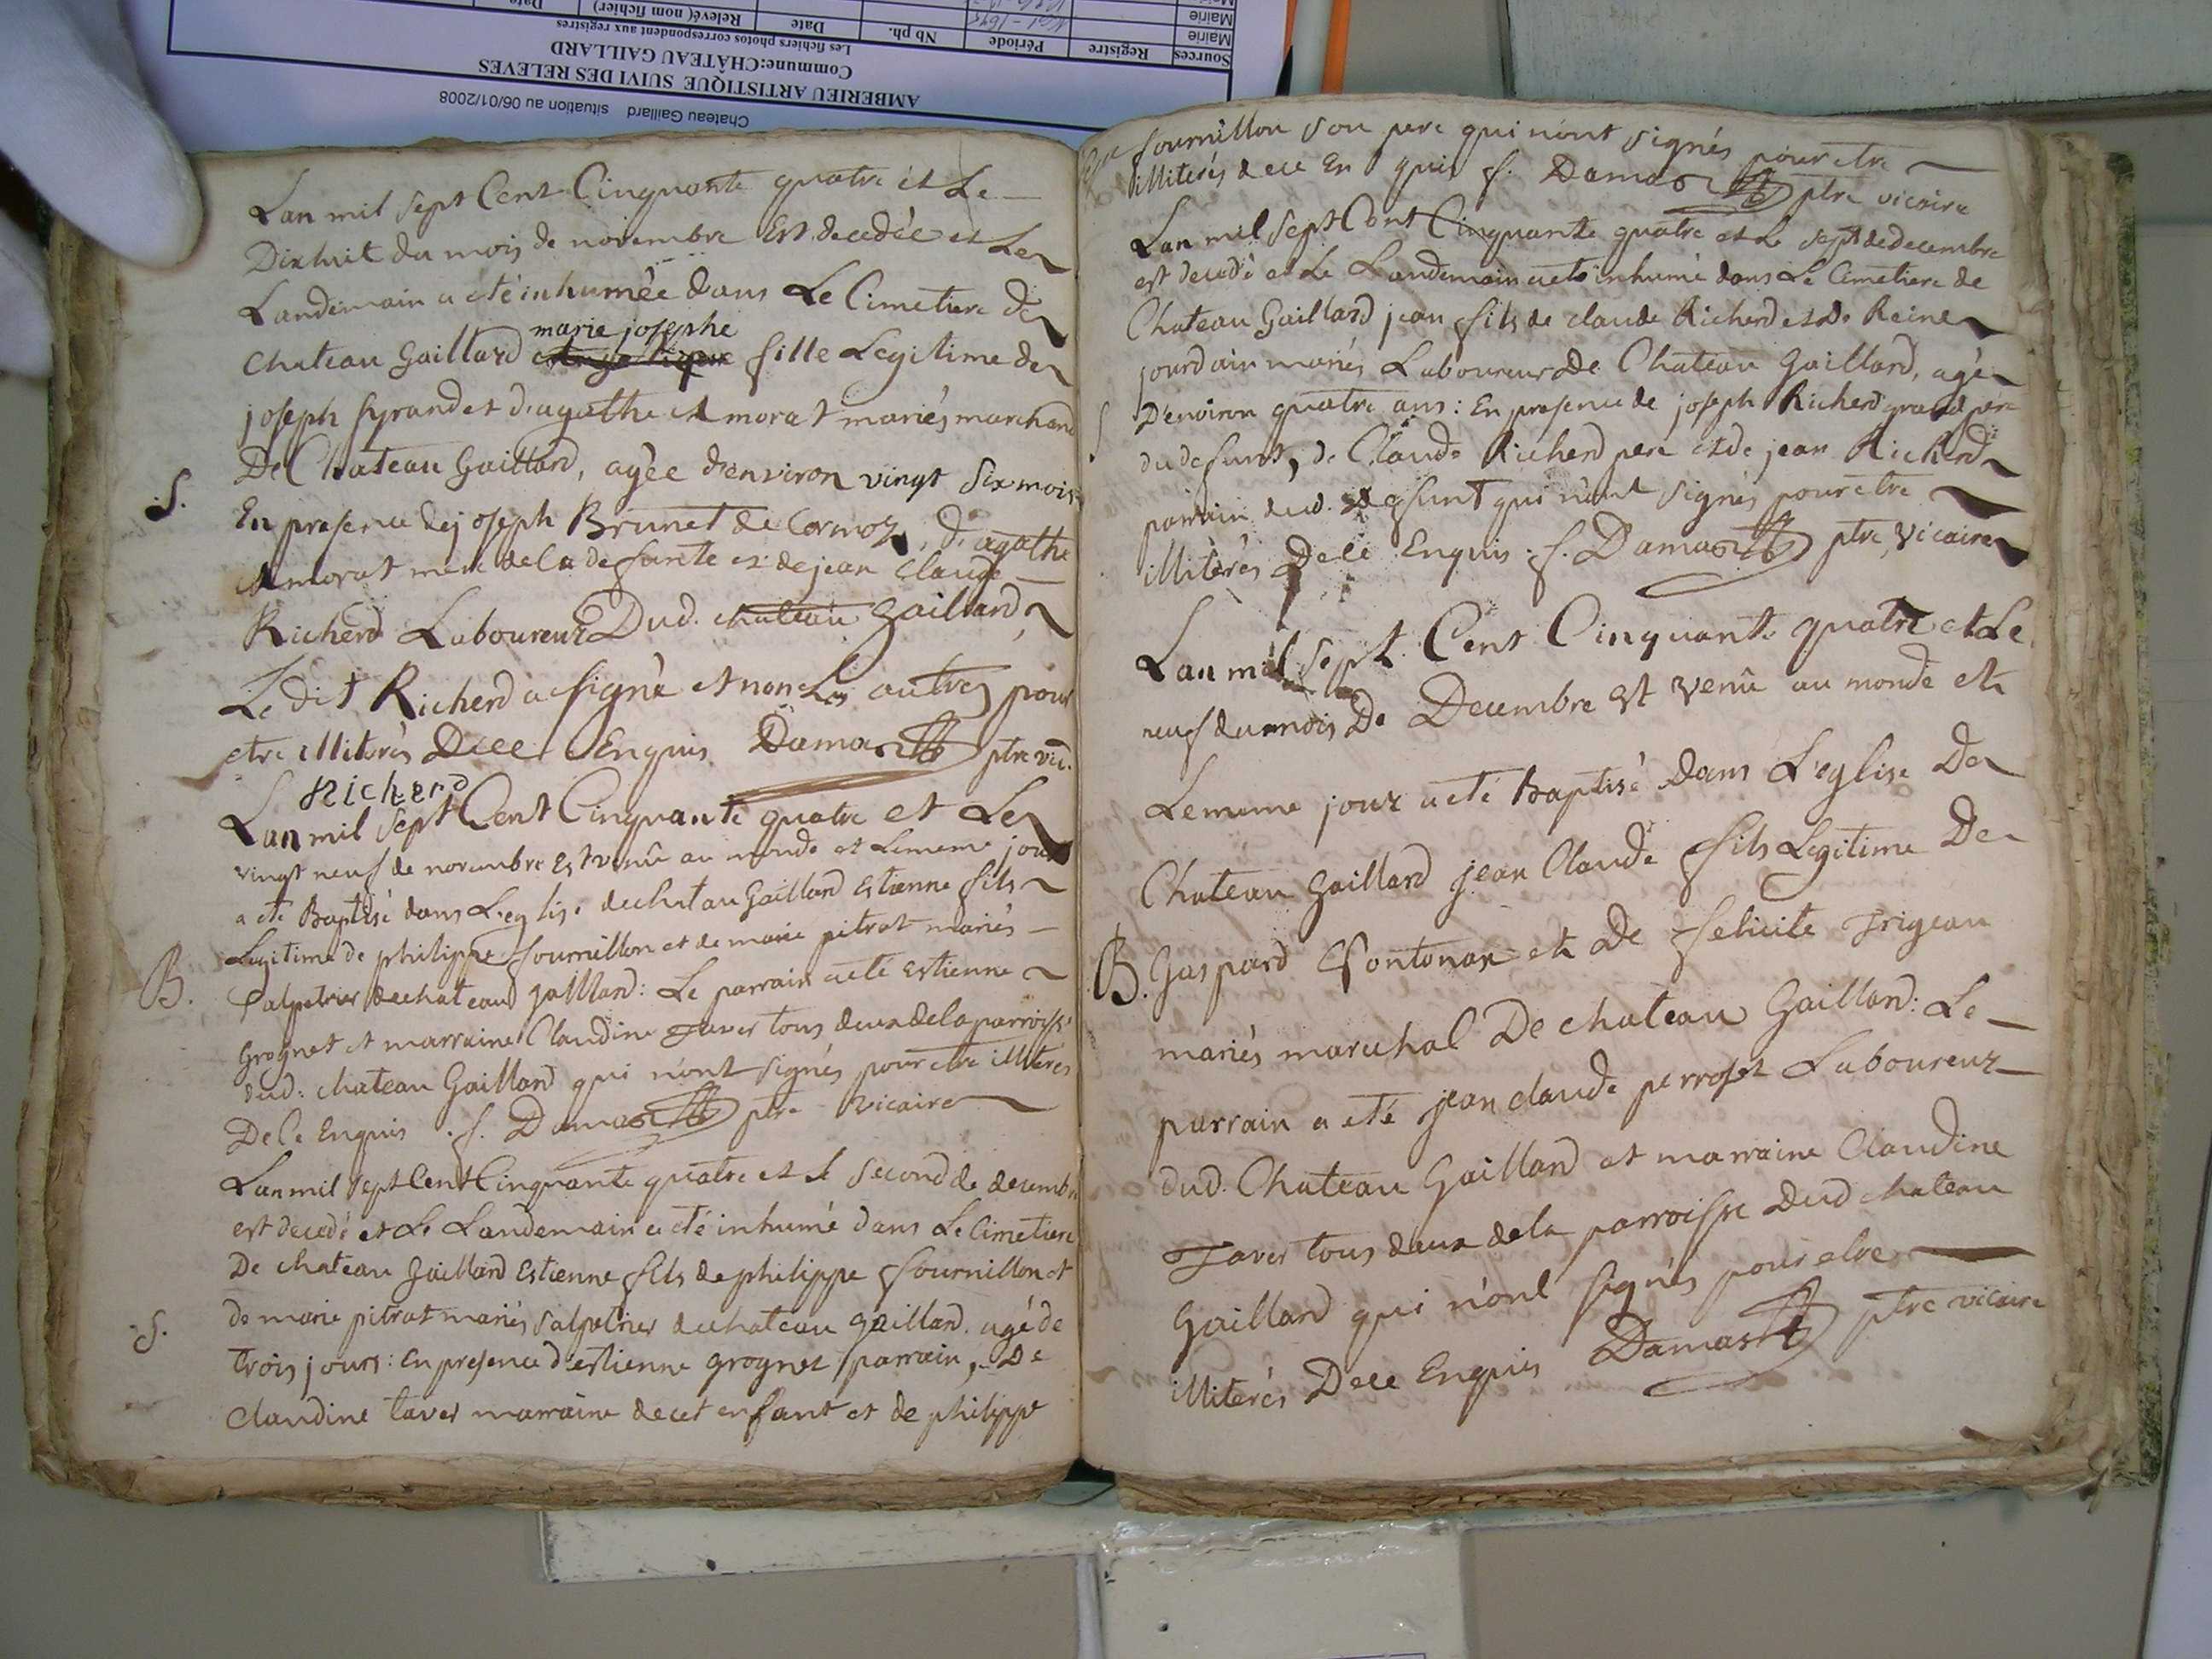 Chateau Gaillard situation au 06/01/2008
AMBERIEU ARTISTIQUE SUIVI DES RELEVES
Commune:CHÂTEAU GAILLARD
Les fichiers photos correspondent aux registres
Sources Registre Période Nb ph. Date Relevé( nom fichier) Date
Mairie
Mairie
Lan mil sept Cent Cinquante quatre et Le
Dixhuit du mois de novembre Est decedée et Le
Landemain a eté inhumée dans Le Cimetiere de
marie josephe
Chateau Gaillard fille Legitime de
joseph Gyrand et d'agathe Amorat mariés marchand
De Chateau Gaillard, agée d'environ vingt Six mois
S.
En presence de joseph Brunet de Cormoz, d'agathe
Amorat mere de la defunte et de jean Claude
Richerd Laboureur Dud. chateau Gaillard
Le dit Richerd a signé et non Les autres pour
etre illiterés Dece Enquis Damas ptre vic.
Richerd
Lan mil sept Cent Cinquante quatre et Le
vingt neuf de novembre Est venû au monde et Lememe jour
a eté Baptisé dans L'eglise de chatau Gaillard Estienne fils
Legitime de philippe fournillon et de marie pitrat mariés
B.
Salpetrier de chateau gaillard: Le parrain a eté Estienne
Grognet et marraine Claudine Taver tous deux de la parroisse
dud: chateau Gaillard qui n'ont signés pour etre illiterés
De Ce Enquis . f. Damas ptre vicaire
Lan mil sept Cent Cinquante quatre et le second de decembre
est decedé et Le Landemain a eté inhumé dans Le Cimetiere
De chateau Gaillard Estienne fils de philippe fournillon et
S.
de marie pitrat mariés salpetrier de chateau gaillard. agé de
trois jours: En presence d'estienne grognet parrain, De
Claudine taver marraine de cet enfant et de philippe
fournillon son pere qui n'ont signés pour etre
illiterés de ce En quis f. Damas ptre vicaire
Lan mil sept Cent Cinquante quatre et Le sept de decembre
est decedé et Le Landemain a eté inhumé dans Le Cimetiere de
Chateau Gaillard jean fils de claude Richerd et de Reine
jourdain mariés Laboureur de Chateau Gaillard, agé
D'environ quatre ans: En presence de joseph Richerd grand pere
S
du defunt, de Claude Richerd pere et de jean Richerd
parrain dud. defunt qui n'ont signés pour etre
illiterés De ce Enquis . f. Damas ptre, vicaire
Lan mil sept Cent Cinquante quatre et Le
neuf du mois De Decembre est venû au monde et
Lememe jour a eté Baptisé dans L'eglise De
Chateau Gaillard jean Claude fils Legitime De
B. Gaspard Fontonax et De felicité Trigeau
mariés marechal De chateau Gaillard: Le
parrain a eté jean claude perroset Laboureur
dud. Chateau Gaillard et marraine Claudine
Taver tous deux de la parroisse Dud chateau
Gaillard qui n'ont signés pour etre
illiterés De ce Enquis Damas ptre vicaire